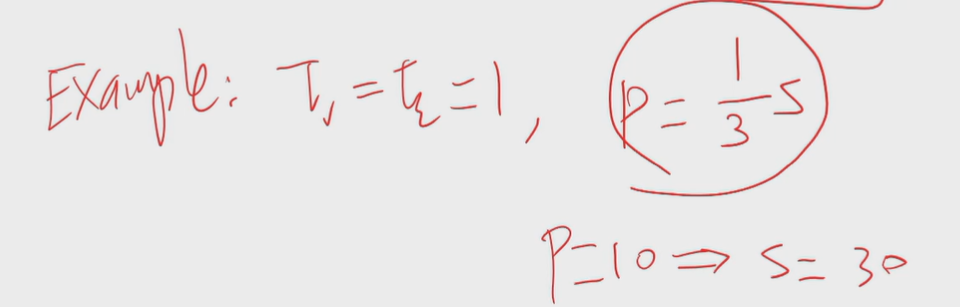 Example: τ₁ = τ₂ = 1, P = 1/3 S
P = 10 ⇒ S = 30